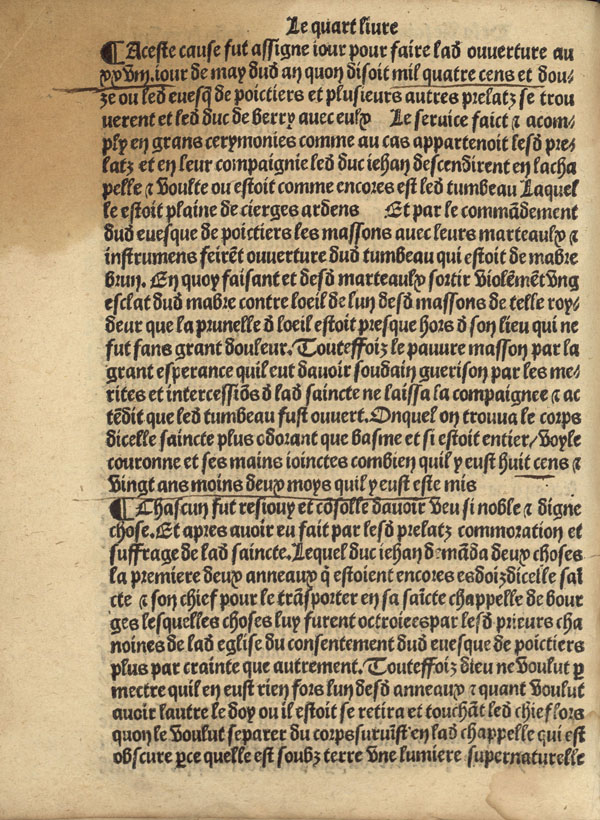 Le quart liure
¶ Aceste cause fut assigne iour pour faire lad ouuerture au
xxviii. iour de may dud an quon disoit mil quatre cens et dou-
ze ou led euesq̃ de poictiers et plusieurs autres prelatz se trou
uerent et led duc de berry auec eulx Le seruice faict ⁊ acom-
ply en grans cerymonies comme au cas appartenoit lesd pre-
latz et en leur compaignie led duc iehan descendirent en lacha
pelle ⁊ voulte ou estoit comme encores est led tumbeau Laquel
le estoit plaine de cierges ardens Et par le commãdement
dud euesque de poictiers les massons auec leurs marteaulx ⁊
instrumens feirẽt ouuerture dud tumbeau qui estoit de mabre
brun. En quoy faisant et desd marteaulx sortir violẽmẽt vng
esclat dud mabre contre loeil de lun desd massons de telle roy-
deur que la prunelle d loeil estoit presque hors d son lieu qui ne
fut sans grant douleur. Touteffoiz le pauure masson par la
grant esperance quil eut dauoir soudain guerison par les me-
rites et intercessiõs d lad saincte ne laissa la compaignee ⁊ ac
tẽdit que led tumbeau fust ouuert. Onquel on trouua le corps
dicelle saincte plus odorant que basme et si estoit entier/ voyle
couronne et ses mains ioinctes combien quil y eust huit cens ⁊
vingt ans moins deux moys quil y eust este mis
¶ Chascun fut resiouy et cõsolle dauoir veu si noble ⁊ digne
chose. Et apres auoir eu fait par lesd prelatz commoration et
suffrage de lad saincte. Lequel duc iehan demãda deux choses
la premiere deux anneaux q̃ estoient encores esdoiz dicelle saĩ
cte ⁊ son chief pour le trãsporter en sa saĩcte chappelle de bour
ges lesquelles choses luy furent octroiees par lesd prieurs cha
noines de lad eglise du consentement dud euesque de poictiers
plus par crainte que autrement. Touteffoiz dieu ne voulut ꝑ
mectre quil en eust rien fors lun desd anneaux ⁊ quant voulut
auoir lautre le doy ou il estoit se retira et touchãt led chief lors
quon le voulut separer du corps suruĩst en lad chappelle qui est
obscure ꝑce quelle est soubz terre vne lumiere supernaturelle